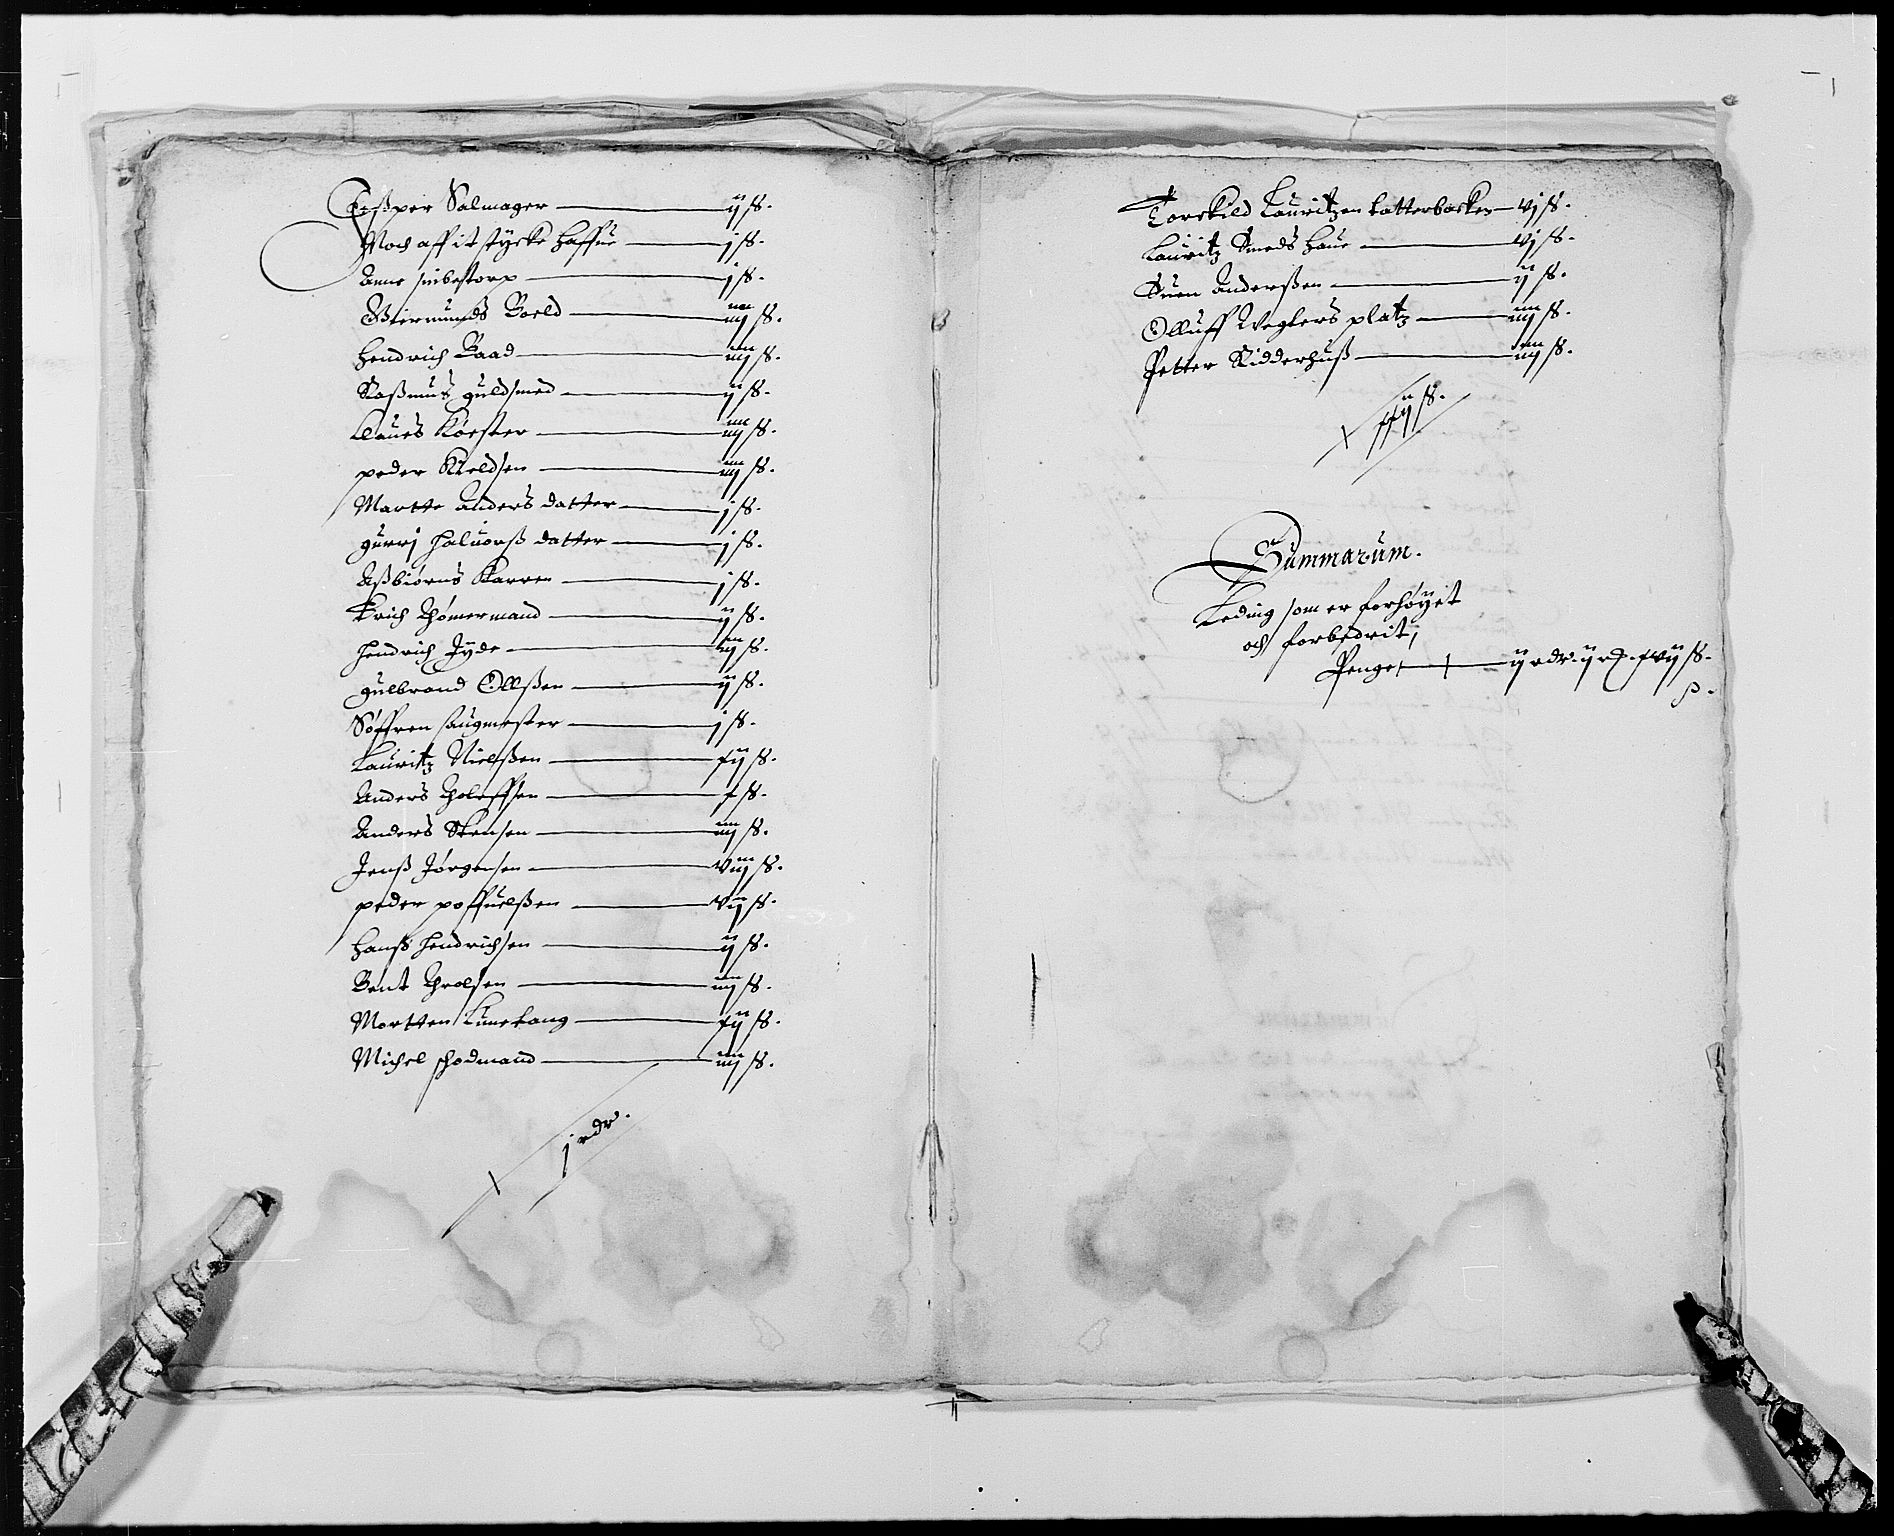 Jesper Salmager — ij ß.
Noch aff it stycke haffue — j ß.
Anne — j ß.
Giermunds Boeld — iiij ß.
Hendrich Baad — iiij ß.
Raßmus guldsmed — ij ß.
Claues Kørster — iiij ß.
peder Kieldsen — iiij ß.
Martte Anders datter — j ß.
gurrj Haluorß datter — j ß.
Aßbiørns Karren — j ß.
Erich Thømermand — ij ß.
Hendrich Jyde — iij ß.
gulbrand Ollßen — ij ß.
Søffren saugmester — j ß.
Lauritz Nielßen — xij ß.
Anders Tholeffsen — x ß.
Anders Stensen — iiij ß.
Jenß Jørgensen — viij ß.
peder poffuelßen — vij ß.
Hanß Hendrichsen — ij ß.
Bent Throlsen — iiij ß.
Mortten — xij ß.
Michel schodmand — iiij ß.
j rdr.
Torckild Lauritzen Latterbacken — vj ß.
Lauritz Smeds Haue — vj ß.
Suen Anderßen — ij ß.
Olluff Weglers platz — iiij ß.
Petter Ridderhuß — iiij ß.
xxij ß.
Summarum.
Leding som er forhøyet
och forbedrit,
Penge — ij rdr. ij xvij ß.